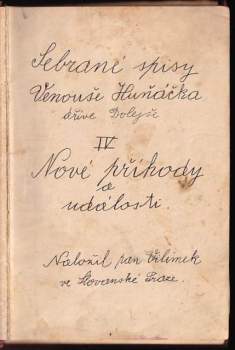 Sebrané spisy
Venouše Huňáčka
dříve Dolejše
IV
Nové příhody
a
události.
Naložil pan Vilímek
ve Slovanské Praze.